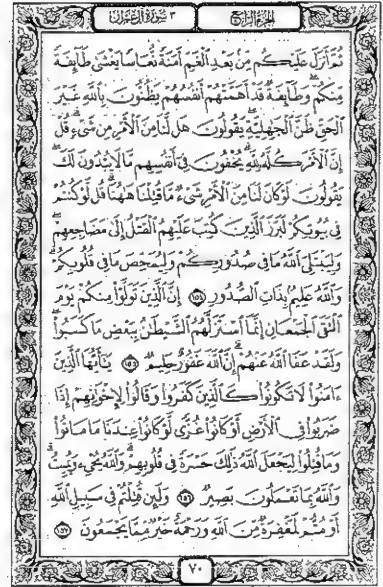 الجزء الرابع ٣ سورة آل عمران
ثُمَّ أَنزَلَ عَلَيْكُم مِّنۢ بَعْدِ ٱلْغَمِّ أَمَنَةً نُّعَاسًا يَغْشَىٰ طَآئِفَةً
مِّنكُمْ ۖ وَطَآئِفَةٌ قَدْ أَهَمَّتْهُمْ أَنفُسُهُمْ يَظُنُّونَ بِٱللَّهِ غَيْرَ
ٱلْحَقِّ ظَنَّ ٱلْجَٰهِلِيَّةِ ۖ يَقُولُونَ هَل لَّنَا مِنَ ٱلْأَمْرِ مِن شَىْءٍ ۗ قُلْ
إِنَّ ٱلْأَمْرَ كُلَّهُۥ لِلَّهِ ۗ يُخْفُونَ فِىٓ أَنفُسِهِم مَّا لَا يُبْدُونَ لَكَ ۖ
يَقُولُونَ لَوْ كَانَ لَنَا مِنَ ٱلْأَمْرِ شَىْءٌ مَّا قُتِلْنَا هَٰهُنَا ۗ قُل لَّوْ كُنتُمْ
فِى بُيُوتِكُمْ لَبَرَزَ ٱلَّذِينَ كُتِبَ عَلَيْهِمُ ٱلْقَتْلُ إِلَىٰ مَضَاجِعِهِمْ ۖ
وَلِيَبْتَلِىَ ٱللَّهُ مَا فِى صُدُورِكُمْ وَلِيُمَحِّصَ مَا فِى قُلُوبِكُمْ ۗ
وَٱللَّهُ عَلِيمٌۢ بِذَاتِ ٱلصُّدُورِ ١٥٤ إِنَّ ٱلَّذِينَ تَوَلَّوْا۟ مِنكُمْ يَوْمَ
ٱلْتَقَى ٱلْجَمْعَانِ إِنَّمَا ٱسْتَزَلَّهُمُ ٱلشَّيْطَٰنُ بِبَعْضِ مَا كَسَبُوا۟ ۖ
وَلَقَدْ عَفَا ٱللَّهُ عَنْهُمْ ۗ إِنَّ ٱللَّهَ غَفُورٌ حَلِيمٌ ١٥٥ يَٰٓأَيُّهَا ٱلَّذِينَ
ءَامَنُوا۟ لَا تَكُونُوا۟ كَٱلَّذِينَ كَفَرُوا۟ وَقَالُوا۟ لِإِخْوَٰنِهِمْ إِذَا
ضَرَبُوا۟ فِى ٱلْأَرْضِ أَوْ كَانُوا۟ غُزًّى لَّوْ كَانُوا۟ عِندَنَا مَا مَاتُوا۟
وَمَا قُتِلُوا۟ لِيَجْعَلَ ٱللَّهُ ذَٰلِكَ حَسْرَةً فِى قُلُوبِهِمْ ۗ وَٱللَّهُ يُحْىِۦ وَيُمِيتُ ۗ
وَٱللَّهُ بِمَا تَعْمَلُونَ بَصِيرٌ ١٥٦ وَلَئِن قُتِلْتُمْ فِى سَبِيلِ ٱللَّهِ
أَوْ مُتُّمْ لَمَغْفِرَةٌ مِّنَ ٱللَّهِ وَرَحْمَةٌ خَيْرٌ مِّمَّا يَجْمَعُونَ ١٥٧
٧٠